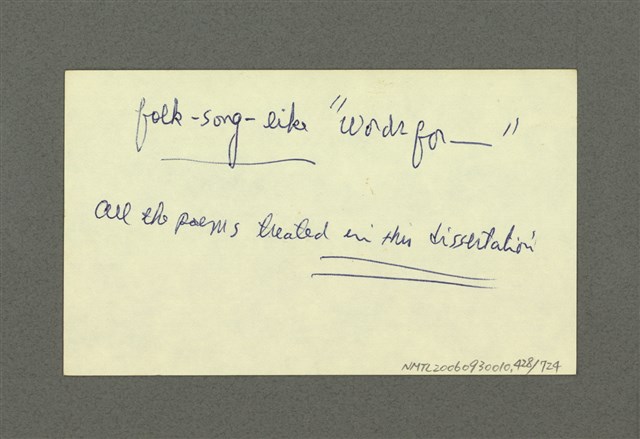 folk-song-like "Words for— "
all the poems treated in this dissertation
NMTL20060930010,428/724